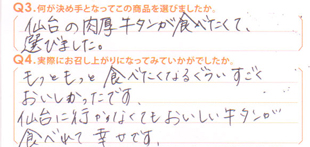 Q3.何が決め手となってこの商品を選びましたか。
仙台の肉厚牛タンが食べたくて、
選びました。
Q4.実際にお召し上がりになってみていかがでしたか。
もっともっと食べたくなるぐらいすごく
おいしかったです。
仙台に行かなくてもおいしい牛タンが
食べれて幸せです。